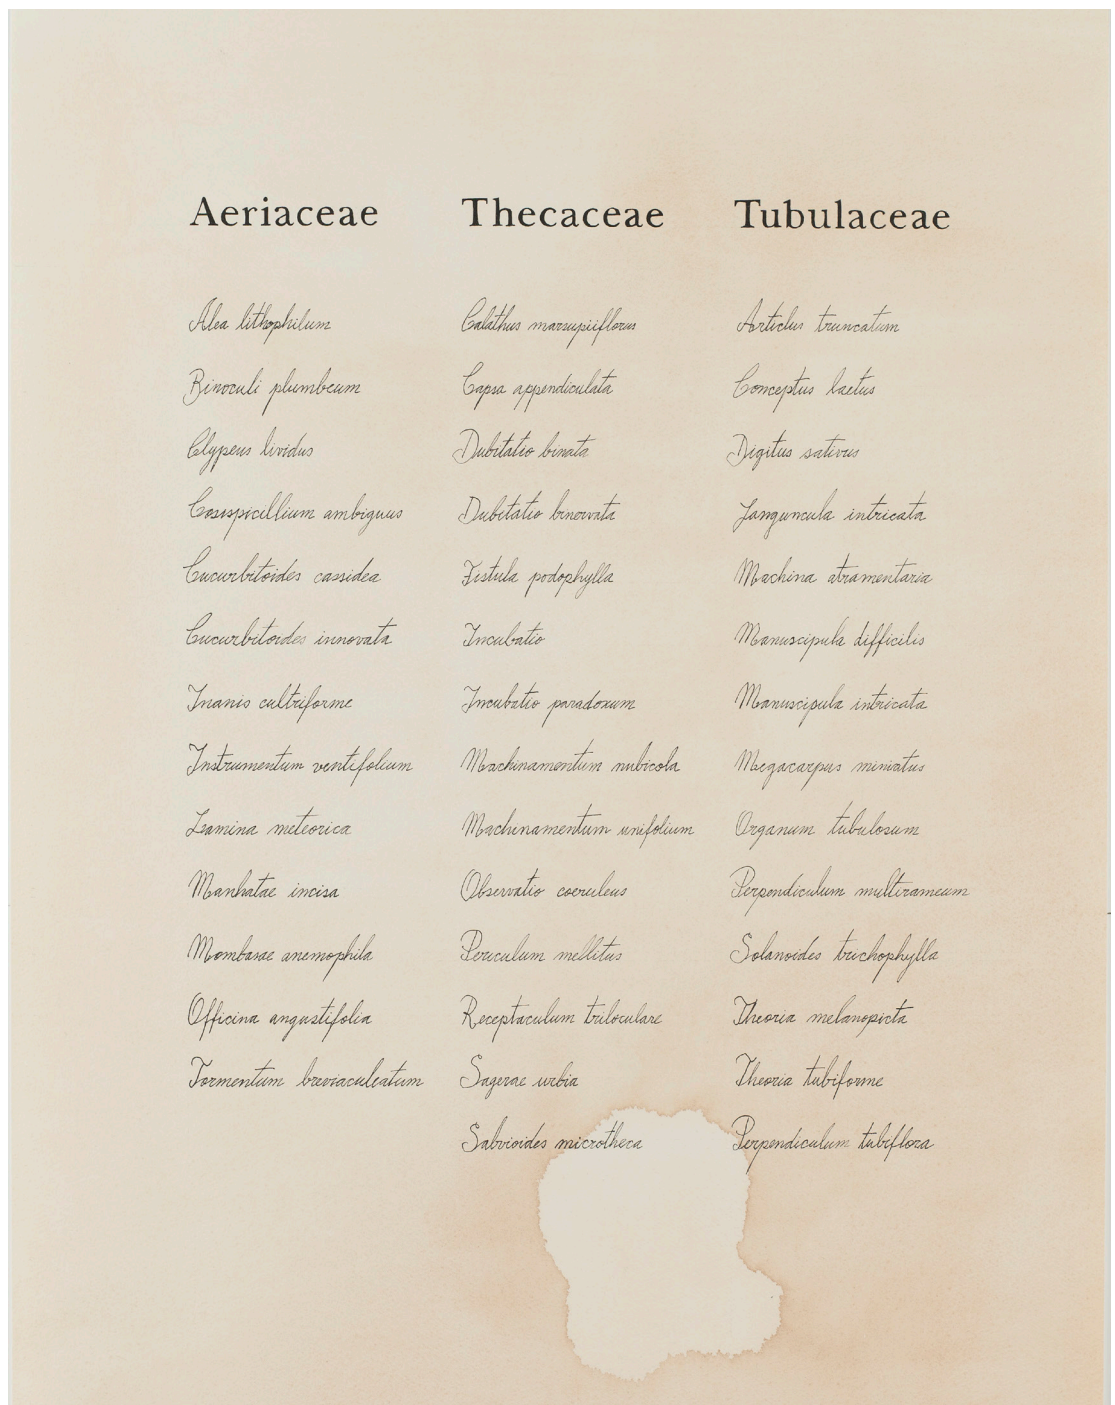 Aeriaceae
Alea lithophilum
Binoculi plumbeum
Clypeus lividus
Conspicillium ambiguus
Cucurbitoides cassidea
Cucurbitoides innovata
Inanis cultriforme
Instrumentum ventifolium
Lamina meteorica
Manhatae incisa
Mombasae anemophila
Officina angustifolia
Tormentum breviaculeatum
Thecaceae
Calathus marsupiiflorus
Capsa appendiculata
Dubitatio binata
Dubitatio binervata
Fistula podophylla
Incubatio
Incubatio paradoxum
Machinamentum nubicola
Machinamentum unifolium
Observatio coeruleus
Periculum mellitus
Receptaculum triloculare
Sagerae urbia
Salvioides microtheca
Tubulaceae
Articlus truncatum
Conceptus laetus
Digitus sativus
Janguncula intricata
Machina atramentaria
Manuscipula difficilis
Manuscipula intricata
Megacarpus miniatus
Organum tubulosum
Perpendiculum multirameum
Solanoides trichophylla
Theoria melanopicta
Theoria tubiforme
Perpendiculum tubiflora